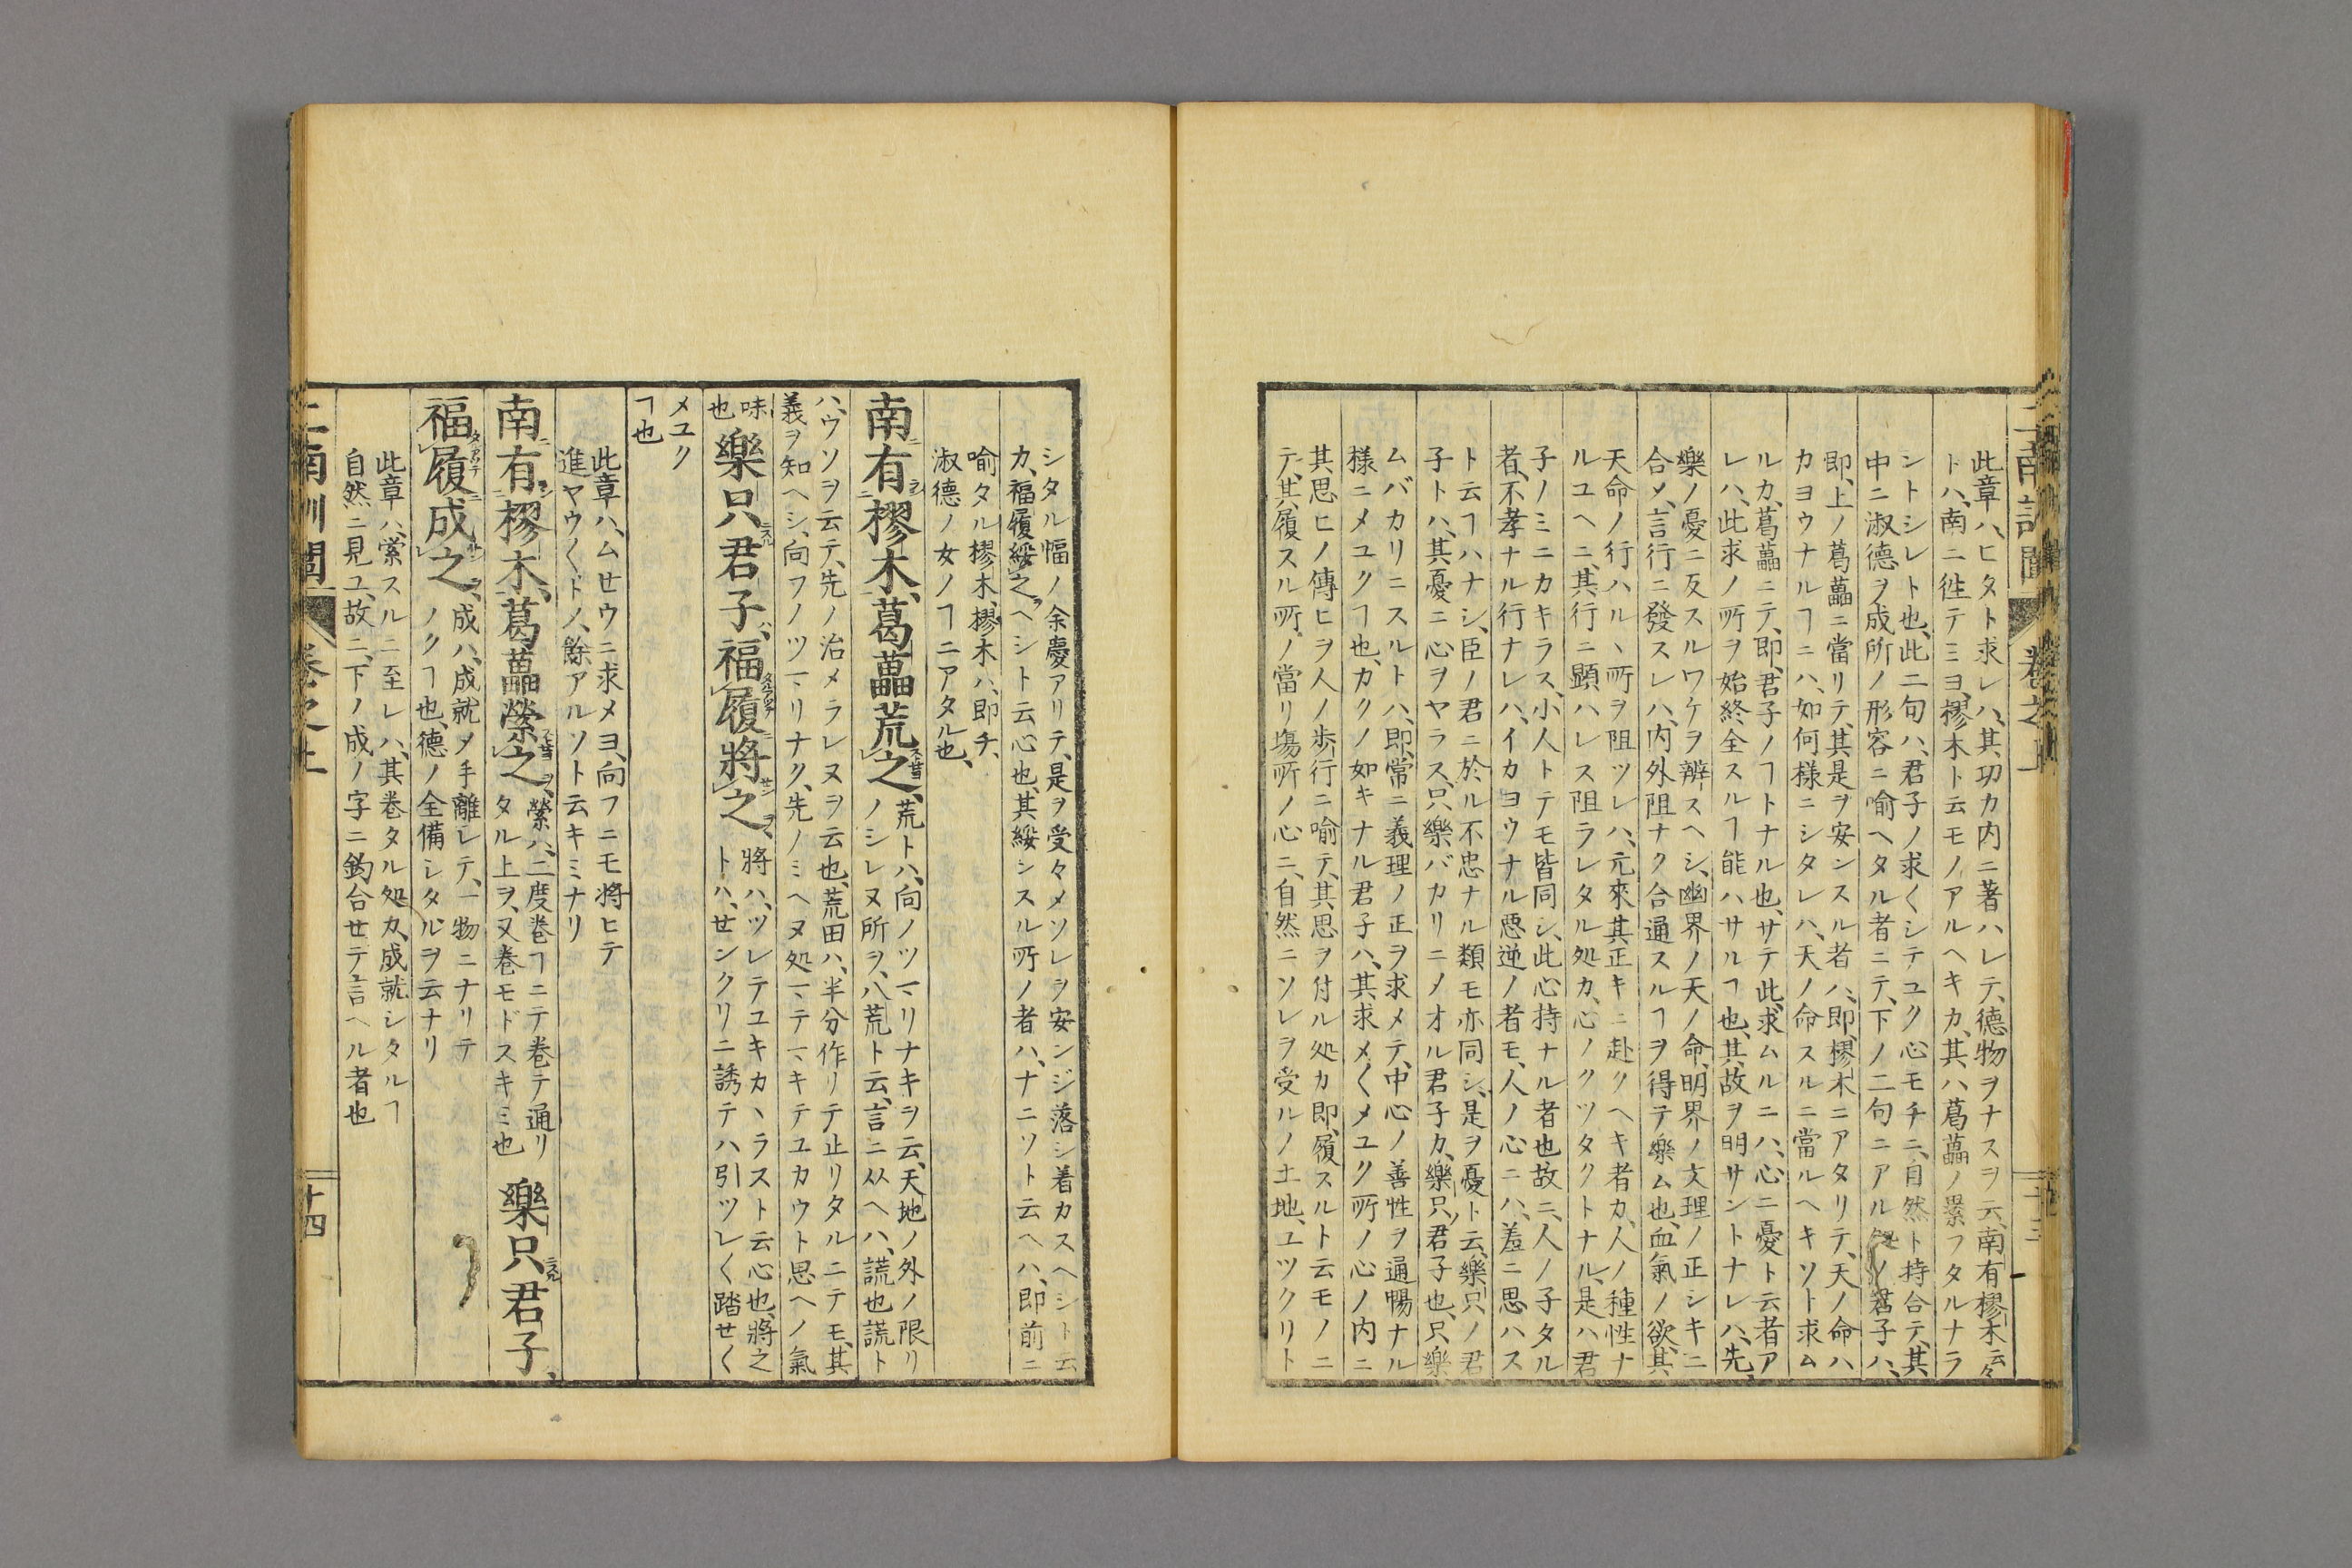 此章ハ、ヒタト求レハ、其功カ内ニ著ハレテ、德物ヲナスヲ云、南有樛木云々
トハ、南ニ徃テミヨ、樛木ト云モノアルヘキカ、其ハ葛藟ノ纍フタルナラ
シトシレト也、此二句ハ、君子ノ求〱シテユク心モチニ、自然ト持合テ、其
中ニ淑德ヲ成所ノ形容ニ喻ヘタル者ニテ、下ノ二句ニアル処ノ君子ハ、
即、上ノ葛藟ニ當リテ、其是ヲ安ンスル者ハ、即、樛木ニアタリテ、天ノ命ハ
カヨウナルヿニハ、如何樣ニシタレハ、天ノ命スルニ當ルヘキソト求ム
ルカ、葛藟ニテ、即、君子ノヿトナル也、サテ此、求ムルニハ、心ニ憂ト云者ア
レハ、此求ノ所ヲ始終全スルヿ能ハサルヿ也、其故ヲ明サントナレハ、先、
樂ノ憂ニ反スルワケヲ辨スヘシ、幽界ノ天ノ命、明界ノ文理ノ正シキニ
合メ、言行ニ發スレハ、内外阻ナク合通スルヿヲ得テ樂ム也、血氣ノ欲、其
天命ノ行ハルヽ所ヲ阻ツレハ、元來其正キニ赴クヘキ者カ、人ノ種性ナ
ルユヘニ、其行ニ顯ハレス阻ラレタル処カ、心ノクツタクトナル、是ハ君
子ノミニカキラス、小人トテモ皆同シ、此心持ナル者也故ニ、人ノ子タル
者、不孝ナル行ナレハ、イカヨウナル惡逆ノ者モ、人ノ心ニハ、羞ニ思ハス
ト云ヿハナシ、臣ノ君ニ於ル不忠ナル類モ亦同シ、是ヲ憂ト云、樂只ノ君
子トハ、其憂ニ心ヲヤラス、只樂バカリニメオル君子カ、樂只君子也、只樂
ムバカリニスルトハ、即、常ニ義理ノ正ヲ求メテ、中心ノ善性ヲ通暢ナル
樣ニメユクヿ也、カクノ如キナル君子ハ、其求メ〱メユク所ノ心ノ内ニ
其思ヒノ傳ヒヲ人ノ歩行ニ喻テ、其思ヲ付ル処カ即、履スルト云モノニ
テ、其履スル所ノ當リ塲所ノ心ニ、自然ニソレヲ受ルノ土地、ユツクリト
シタル幅ノ余慶アリテ、是ヲ受々メソレヲ安ンジ落シ着カスヘシト云
カ、福履綏之ヘシト云心也、其綏ンスル所ノ者ハ、ナニソト云ヘハ、即前ニ
喻タル樛木、樛木ハ、即チ、
淑德ノ女ノヿニアタル也、
南有樛木、葛藟荒之、荒トハ、向ノツマリナキヲ云、天地ノ外ノ限リ
ノシレヌ所ヲ、八荒ト云、言ニ从ヘハ、謊也謊ト
ハ、ウソヲ云テ、先ノ治メラレヌヲ云也、荒田ハ、半分作リテ止リタルニテモ、其
義ヲ知ヘシ、向フノツマリナク、先ノミヘヌ処マテマキテユカウト思ヘノ氣
味
也
樂只君子、福履將之、將ハ、ツレテユキカヽラスト云心也、將之
トハ、せンクリニ誘テハ引ツレ〱踏せ〱
メユク
ヿ也
此章ハ、ムせウニ求メヨ、向フニモ將ヒテ
進ヤウ〱ドノ、餘アルソト云キミナリ
南有樛木、葛藟縈之、縈ハ、二度巻ヿニテ巻テ通リ
タル上ヲ、又巻モドスキミ也
樂只君子、
福履成之、成ハ、成就メ手離レテ、一物ニナリテ
ノクヿ也、德ノ全備シタルヲ云ナリ
此章ハ、縈スルニ至レハ、其巻タル処カ、成就シタルヿ
自然ニ見ユ、故ニ、下ノ成ノ字ニ鈎合せテ言ヘル者也
二南訓闡 卷之上 十四